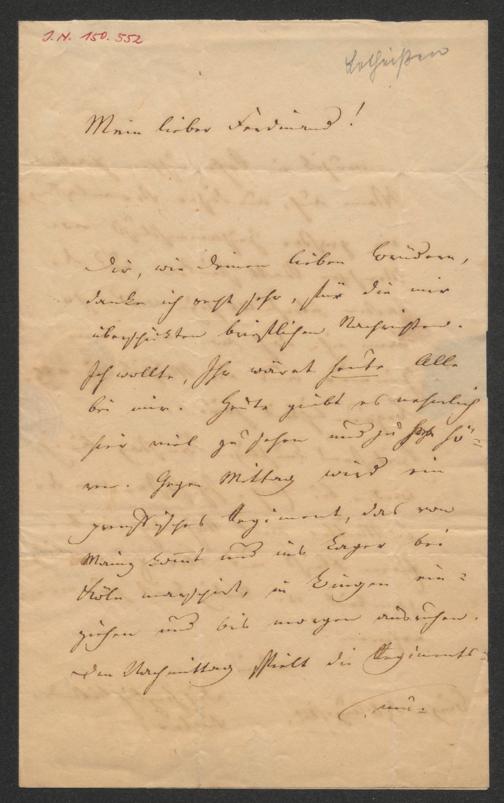 J.N. 150.552
Lotheißen
Mein lieber Ferdinand!
Dir, wie Deinen lieben Brüdern,
danke ich recht sehr, für die mir
überschickten brieflichen Nachrichten.
Ich wollte, Ihr wäret heute Alle
bei mir. Heute giebt es nehmlich
hier viel zu sehen und zu hö=
ren. Gegen Mittag wird ein
preußisches Regiment, das von
Mainz kommt und ins Lager bei
Köln marschirt, in Bingen ein=
ziehen und bis morgen ausruhen.
Den Nachmittag spielt die Regiments=
mu=